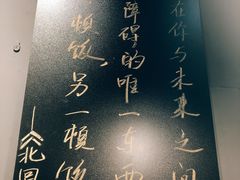 在你与未来之间
障碍的唯一东西
顿饭另一顿饭
——《北回